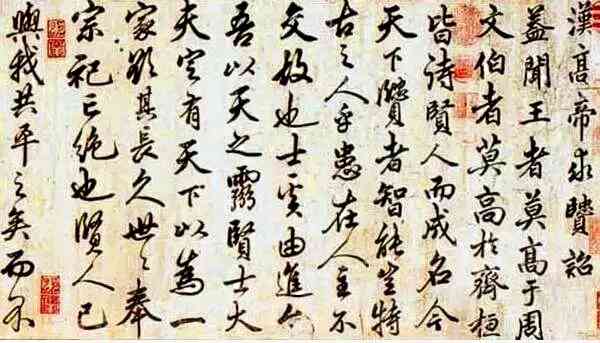 漢高帝求賢詔
蓋聞王者莫高于周
文伯者莫高於齊桓
皆待賢人而成名今
天下賢者智能豈特
古之人乎患在人主不
交故也士奚由進今
吾以天之靈賢士大
夫定有天下以為一
家欲其長久世〻奉
宗祀亡絕也賢人已
與我共平之矣而不